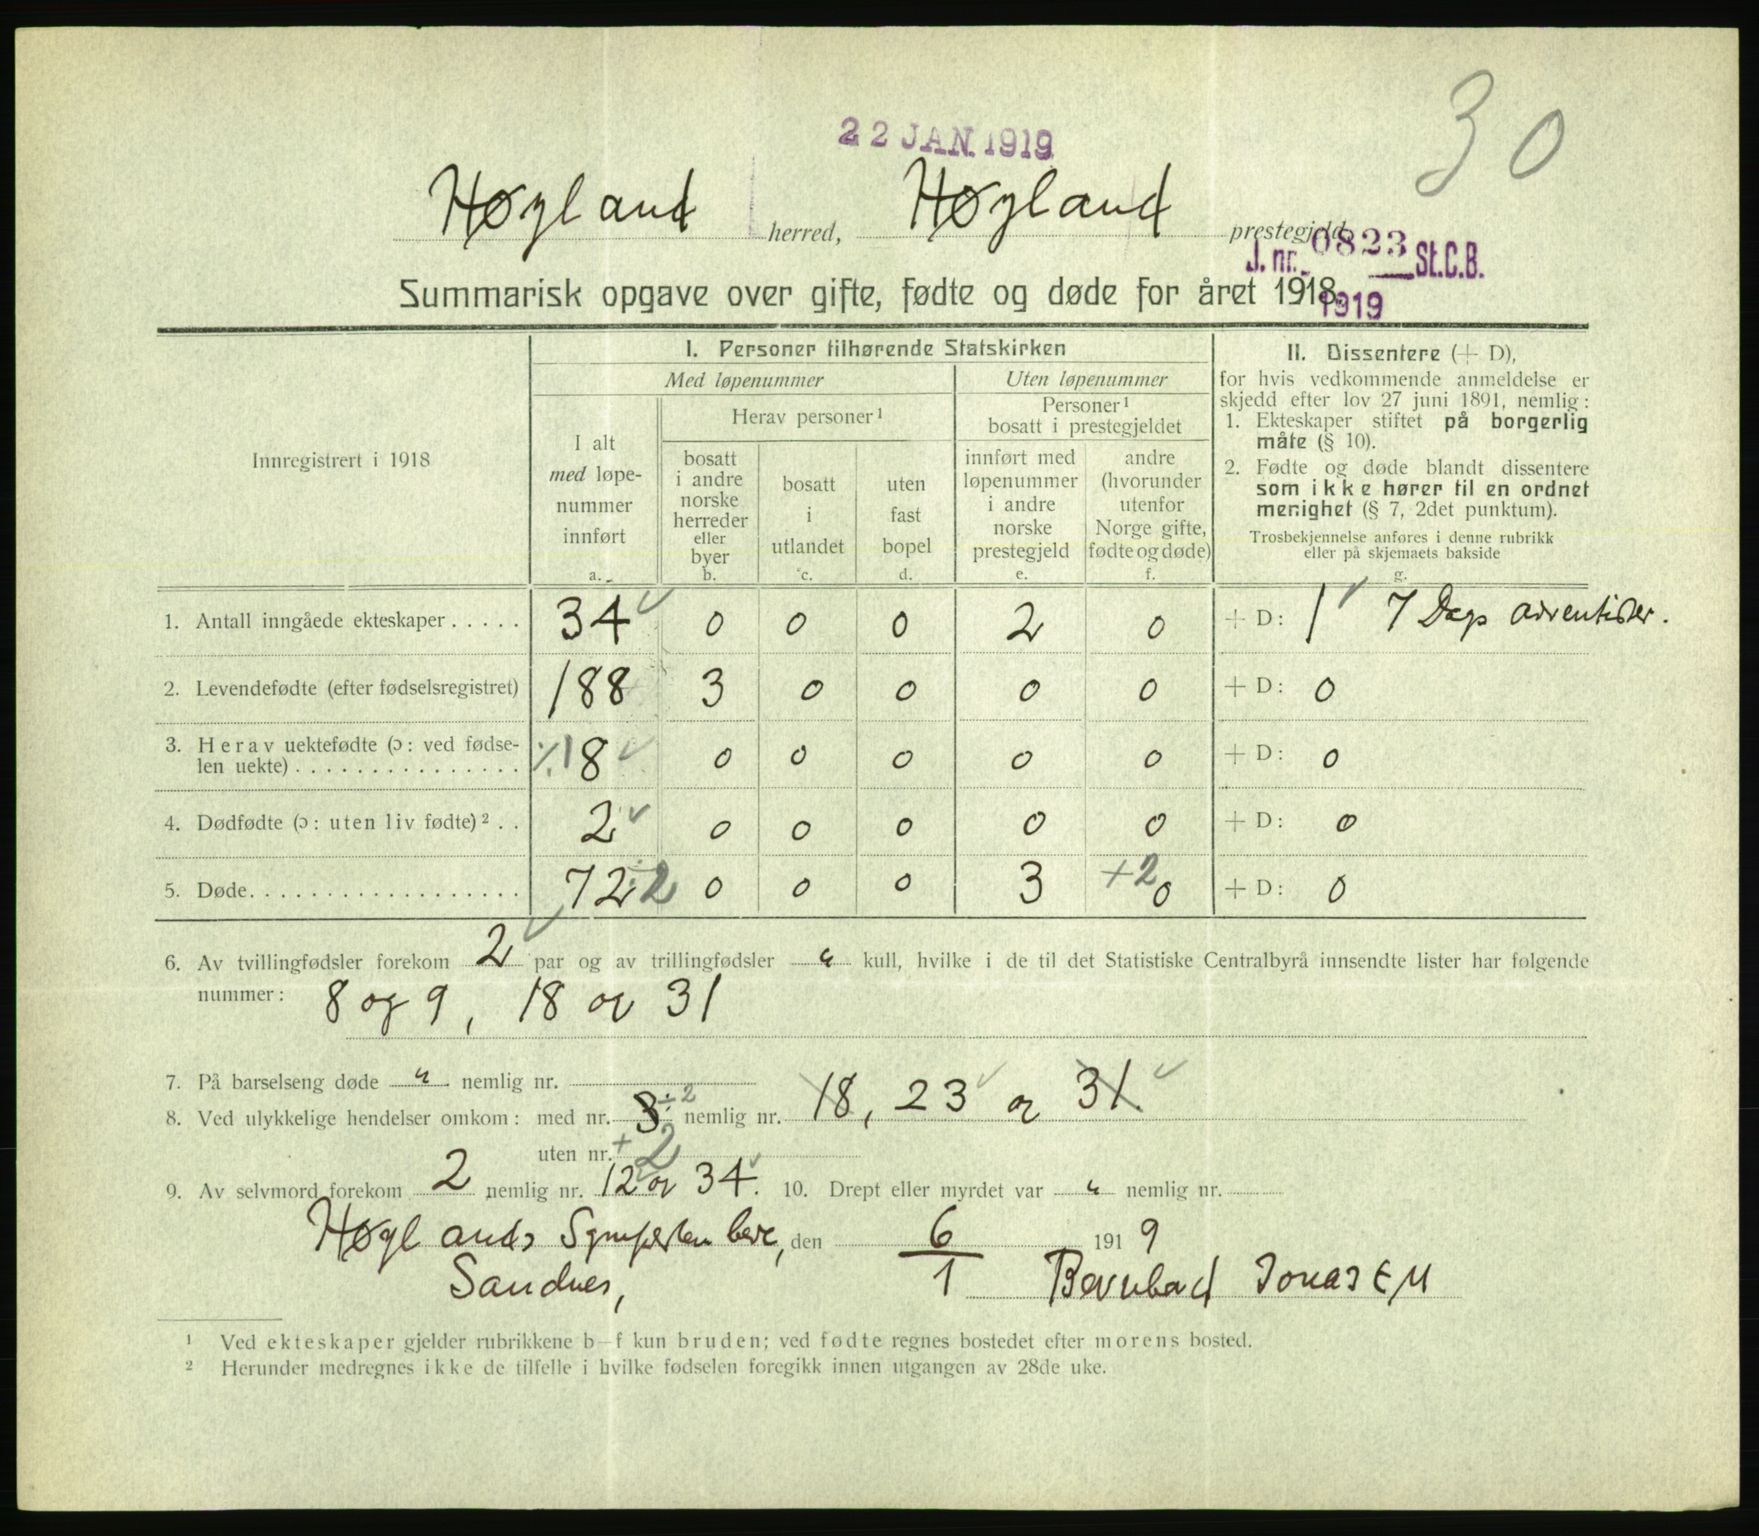 30
22 JAN. 1919
Høgland herred, Høgland prestegjeld
J. nr. 0823 St.C.B.
1919
Summarisk opgave over gifte, fødte og døde for året 1918.
Innregistrert i 1918
I. Personer tilhørende Statskirken
Med løpenummer
Uten løpenummer
I alt
med løpe-
nummer
innført
a.
Herav personer¹
bosatt
i andre
norske
herreder
eller
byer
b.
bosatt
i
utlandet
c.
uten
fast
bopel
d.
Personer¹
bosatt i prestegjeldet
innført med
løpenummer
i andre
norske
prestegjeld
e.
andre
(hvorunder
utenfor
Norge gifte,
fødte og døde)
f.
II. Dissentere (+ D),
for hvis vedkommende anmeldelse er
skjedd efter lov 27 juni 1891, nemlig:
1. Ekteskaper stiftet på borgerlig
måte (§ 10).
2. Fødte og døde blandt dissentere
som ikke hører til en ordnet
menighet (§ 7, 2det punktum).
Trosbekjennelse anføres i denne rubrikk
eller på skjemaets bakside
g.
1. Antall inngåede ekteskaper..... 34 0 0 0 2 0 + D: 1 7 Dags adventister.
2. Levendefødte (efter fødselsregistret) 188 3 0 0 0 0 + D: 0
3. Herav uektefødte (ɔ: ved fødse-
len uekte)............... ⁒ 18 0 0 0 0 0 + D: 0
4. Dødfødte (ɔ: uten liv fødte)².. 2 0 0 0 0 0 + D: 0
5. Døde.................. 72 ÷2 0 0 0 3 +2 0 + D: 0
6. Av tvillingfødsler forekom 2 par og av trillingfødsler " kull, hvilke i de til det Statistiske Centralbyrå innsendte lister har følgende
nummer: 8 og 9, 18 og 31
7. På barselseng døde " nemlig nr.
8. Ved ulykkelige hendelser omkom: med nr. 3 ÷2 nemlig nr. 18, 23 og 31.
uten nr. +2
9. Av selvmord forekom 2 nemlig nr. 12 og 34. 10. Drept eller myrdet var " nemlig nr.
Høglands, den 6/1 1919
Sandnes, Bernhard Jonassen
¹ Ved ekteskaper gjelder rubrikkene b–f kun bruden; ved fødte regnes bostedet efter morens bosted.
² Herunder medregnes ikke de tilfelle i hvilke fødselen foregikk innen utgangen av 28de uke.